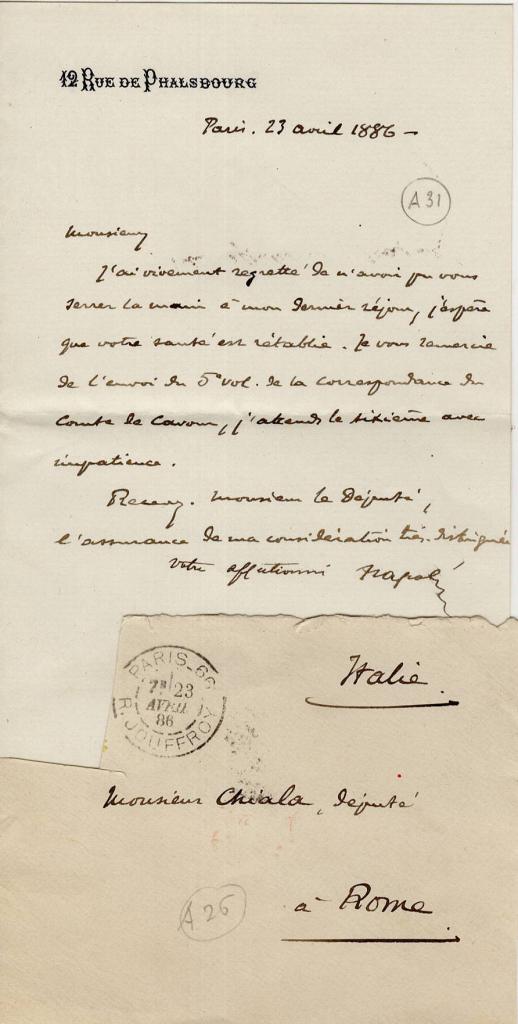 12 RUE DE PHALSBOURG
Paris. 23 avril 1886 –
A 31
Monsieur
J'ai vivement regretté de n'avoir pu vous
serrer la main à mon dernier séjour, j'espère
que votre santé est rétablie. Je vous remercie
de l'envoi du 5e vol. de la correspondance du
Comte de Cavour, j'attends le sixième avec
impatience.
Recevez. Monsieur le Député,
l'assurance de ma considération très-distinguée
votre affectionné Napoléon
PARIS_66
7E 23
AVRIL
86
R. JOUFFROY
Italie
Monsieur Chiala, député
A 26
à Rome